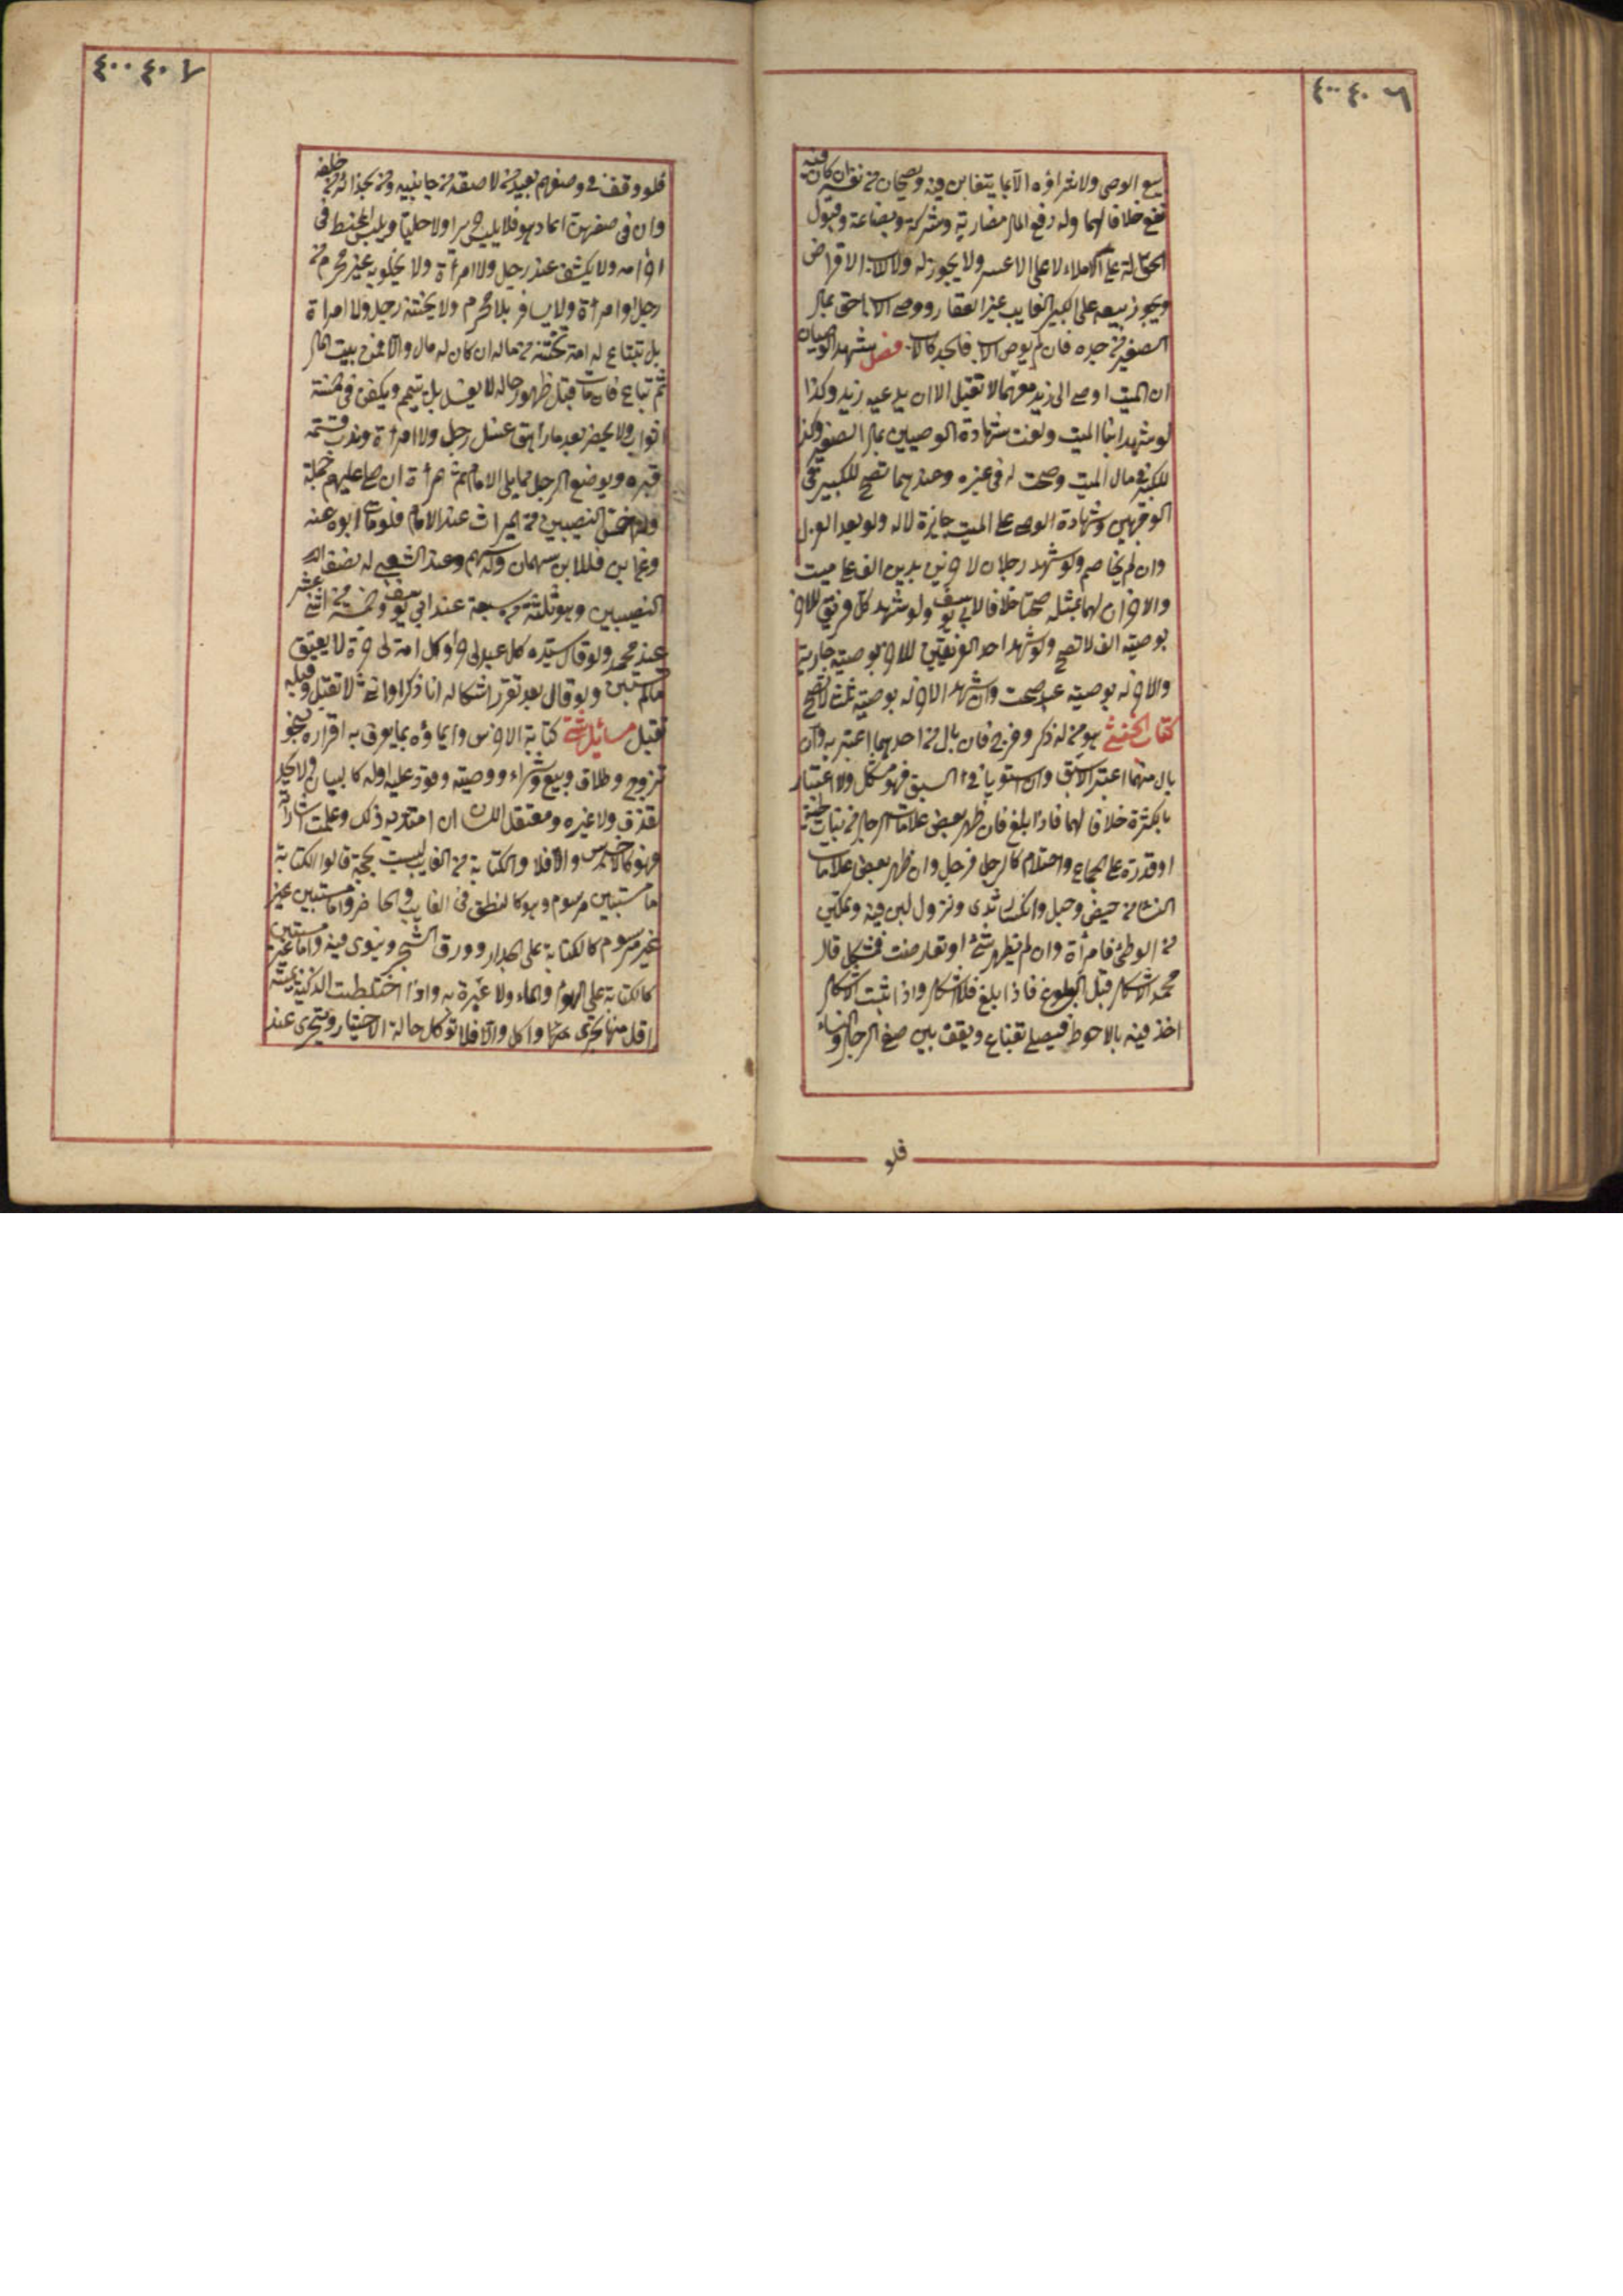 ٤٠٠ ٤٠٦
بيع الوصى ولا شراؤه الا بما يتغابن فيه ويصحان من نفسه ان كان فيه
نفع خلافا لهما وله دفع المال مضاربة وشركة وبضاعة وقبول
الحوالة على الاملاء لا على الاعسر ولا يجوز له ولا للاب الاقراض
ويجوز بيعه على الكبير الغايب غير العقار ووصى الاب احق بمال
الصغير من جده فان لم يوص الاب فالجد كالاب فصل شهد الوصيان
ان الميت اوصى الى زيد معهما لا تقبل الا ان يدعيه زيد وكذا
لو شهد ابنا الميت ولغت شهادة الوصيين بمال الصغير وكذا
للكبير فى مال الميت وصحت له فى غيره وعندهما تصح للكبير فى
الوجهين وشهادة الوصى على الميت جايزة لا له ولو بعد العزل
وان لم يخاصم ولو شهد رجلان لاخرين بدين الف على ميت
والاخران لهما بمثله صحتا خلافا لابى يوسف ولو شهد كل فريق للاخر
بوصية الف لا تصح ولو شهد احد الفريقين للاخر بوصية جارية
والاخر له بوصية عبد صحت وان شهد الاخر له بوصية ثلث لا تصح
كتاب الخنثى هو من له ذكر وفرج فان بال من احدهما اعتبر به وان
بال منهما اعتبر الاسبق وان استويا فى السبق فهو مشكل ولا اعتبار
بالكثرة خلافا لهما فاذا بلغ فان ظهر بعض علامات الرجال من نبات لحية
او قدرة على الجماع واحتلام كالرجل فرجل وان ظهر بعض علامات
النساء من حيض وحبل وانكسار ثدى ونزول لبن فيه وتمكين
من الوطئ فامرأة وان لم يظهر شئ او تعارضت فمشكل قال
محمد الاشكال قبل البلوغ فاذا بلغ فلا اشكال واذا ثبت الاشكال
اخذ فيه بالاحوط فيصلى بقناع ويقف بين صف الرجال والنساء
فلو
٤٠٠ ٤٠٧
فلو وقف فى صفهم يعيد من لاصقه من جانبيه ومن بحذائه من خلفه
وان فى صفهن اعاد هو فلا يلبس حريرا ولا حليا ويلبس المخيط فى
احرامه ولا يكشف عند رجل ولا امرأة ولا يخلو به غير محرم من
رجل او امرأة ولا يسافر بلا محرم ولا يختنه رجل ولا امرأة
بل تبتاع له امة تختنه من ماله ان كان له مال والا فمن بيت المال
ثم تباع فان مات قبل ظهور حاله لا يغسل بل يتيمم ويكفن فى خمسة
اثواب ولا يحضر بعد ما راهق غسل رجل ولا امرأة وندب تسجية
قبره ويوضع الرجل مما يلى الامام ثم هو ثم المرأة ان صلى عليهم جملة
وله اخس النصيبين من الميراث عند الامام فلو مات ابوه عنه
وعن ابن فللابن سهمان وله سهم وعند الشعبى له نصف
النصيبين وهو ثلثة من سبعة عند ابى يوسف وخمسة من اثنى عشر
عند محمد ولو قال سيده كل عبد لى حر او كل امة لى حرة لا يعتق
مالم يستبن ولو قال بعد تقرر اشكاله انا ذكر او انثى لا تقبل وقبله
تقبل مسائل شتى كتابة الاخرس وايماؤه بما يعرف به اقراره بنحو
تزوج وطلاق وبيع وشراء ووصية وقود عليه او له كالبيان ولا يحد
لقذف ولا غيره ومعتقل اللسان ان امتد به ذلك وعلمت اشاراته
فهو كالاخرس والا فلا والكتابة من الغايب ليست بحجة قالوا الكتابة
اما مستبين مرسوم وهو كالنطق فى الغايب والحاضر واما مستبين غير
غير مرسوم كالكتابة على الجدار وورق الشجر وينوى فيه واما غير مستبين
كالكتابة على الهواء والماء ولا عبرة به واذا اختلطت الذكية بميتة
اقل منها تحرى منها واكل والا فلا تؤكل حالة الاختيار ويتحرى عند